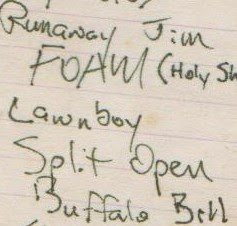 Runaway Jim
FOAM (Holy Sh
Lawnboy
Split Open
Buffalo Bill